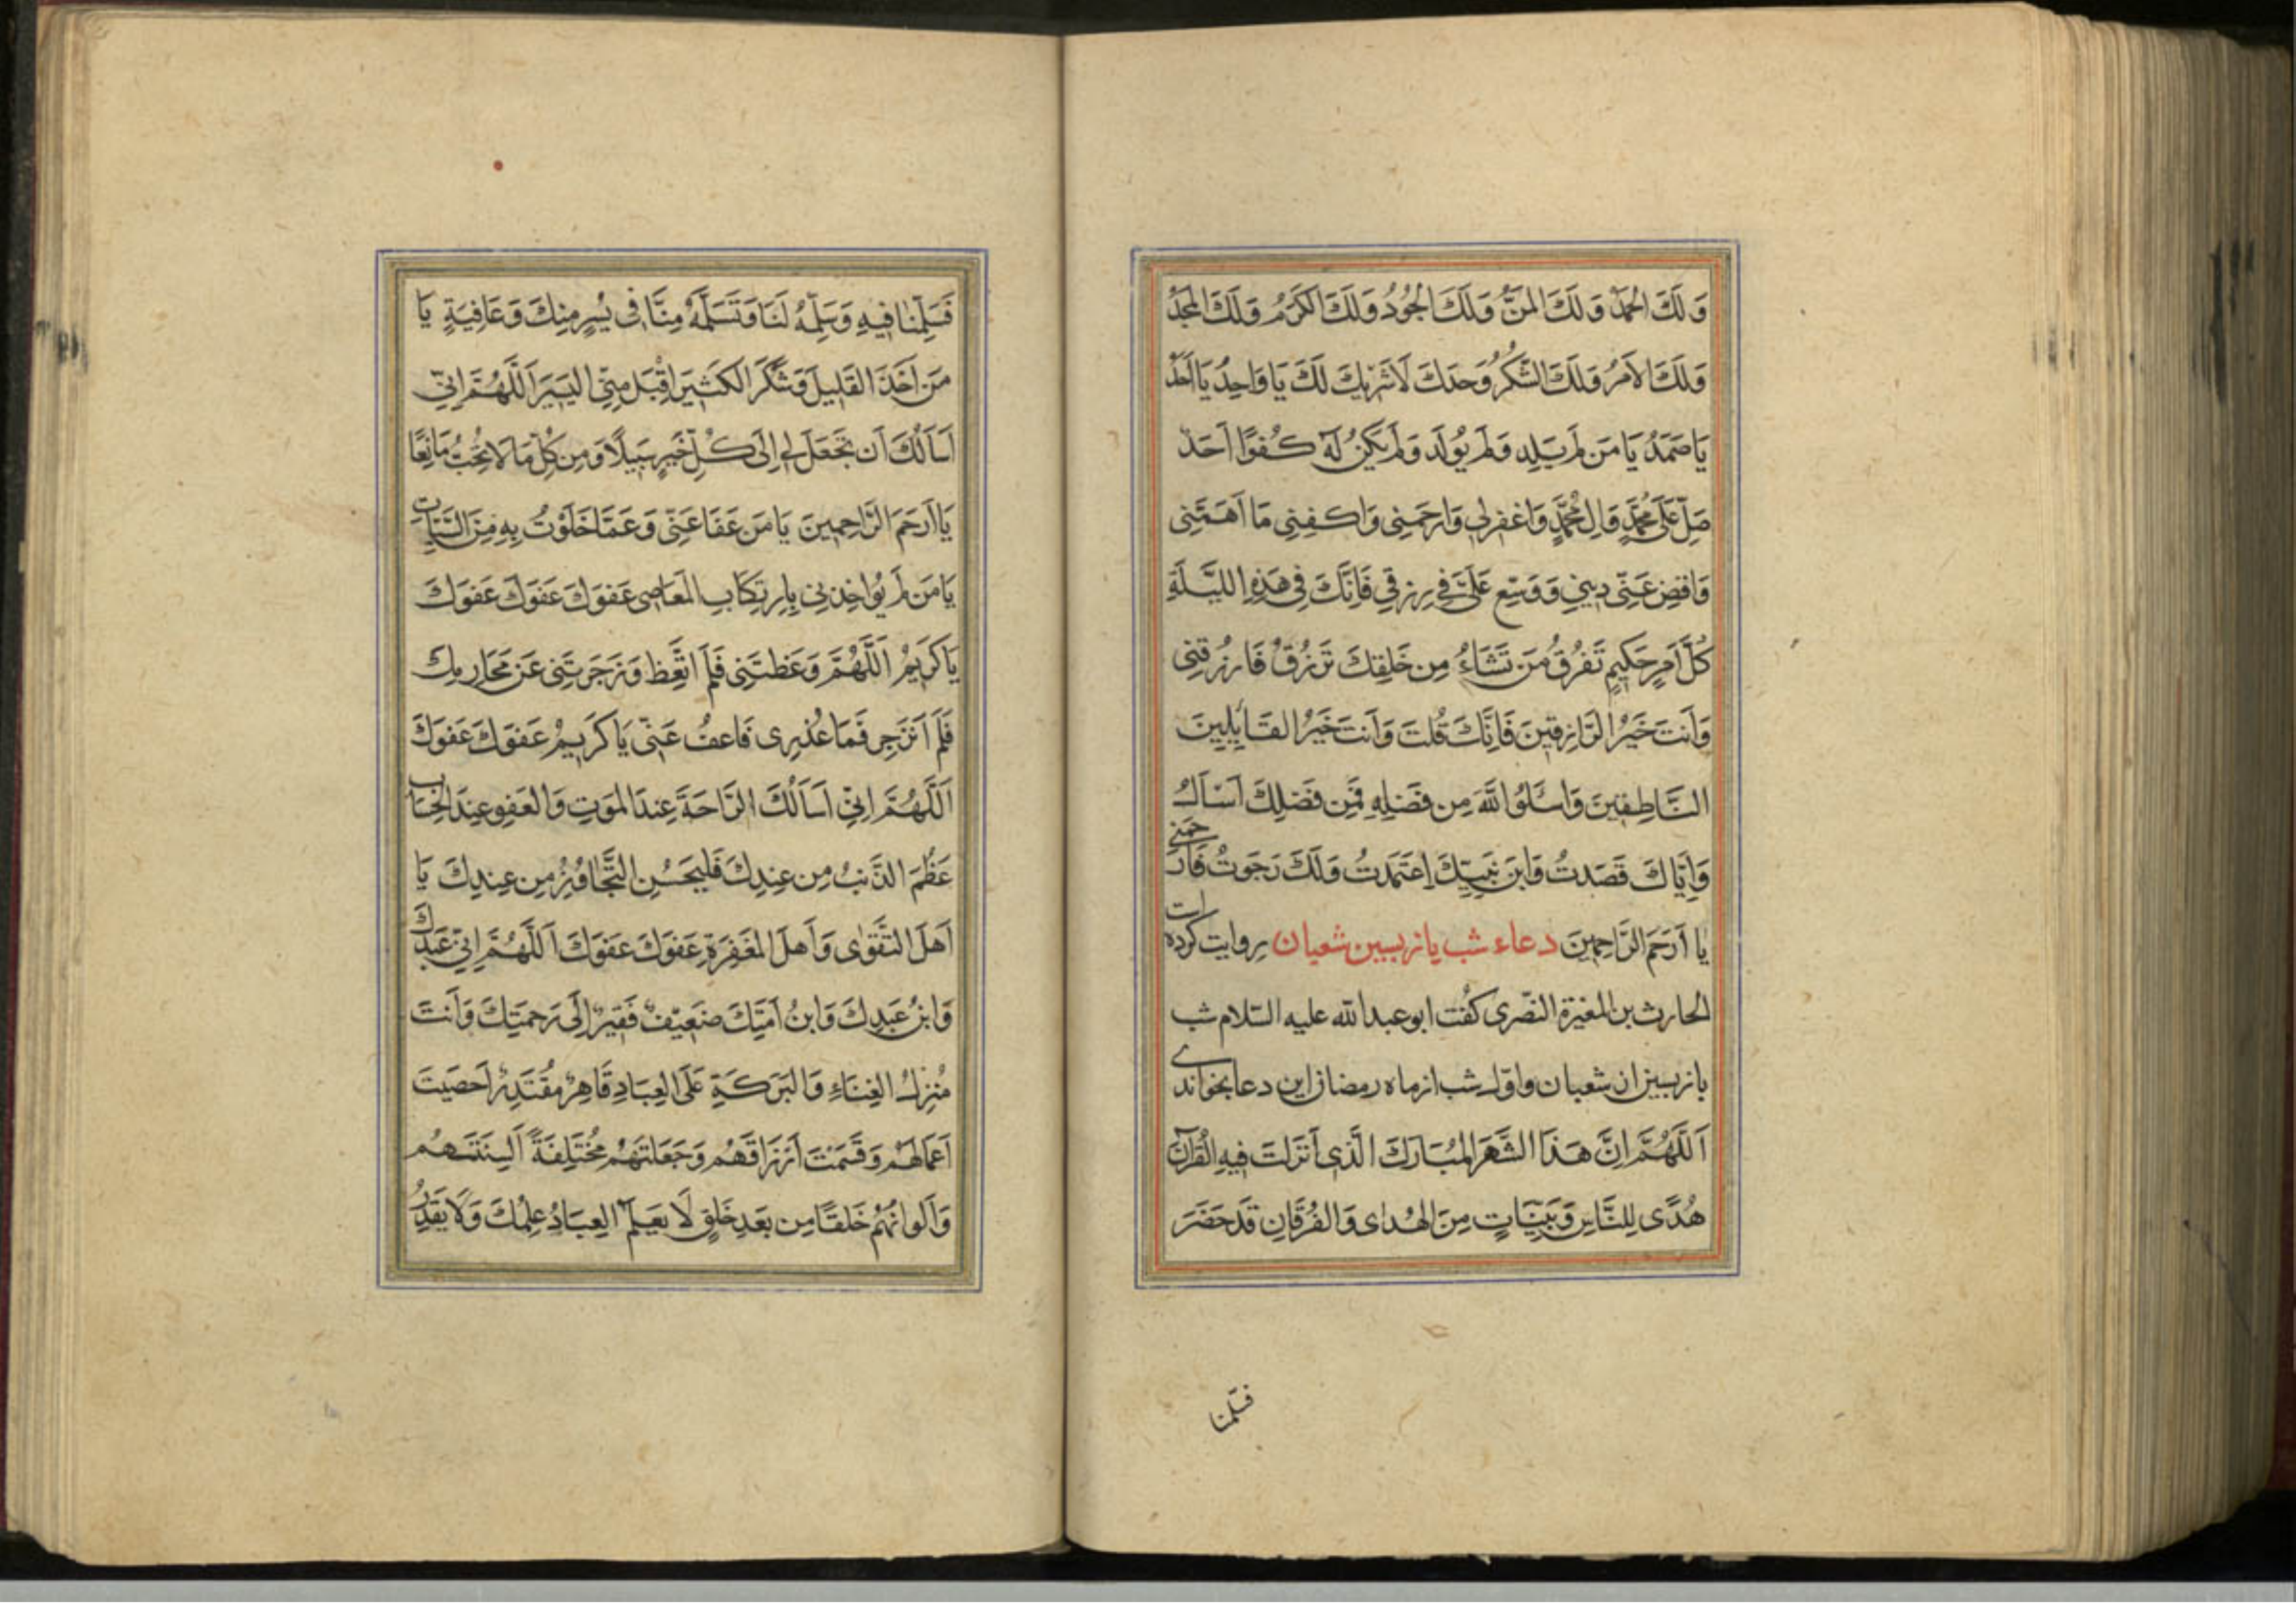 وَلَكَ الحَمْدُ وَلَكَ المَنُّ وَلَكَ الجُودُ وَلَكَ الكَرَمُ وَلَكَ المَجْدُ
وَلَكَ الاَمرُ وَلَكَ الشُّكرُ وَحدَكَ لَاشَرِيكَ لَكَ يَا وَاحِدُ يَا اَحَدُ
يَا صَمَدُ يَا مَن لَم يَلِد وَلَم يُولَد وَلَم يَكُن لَهُ كُفُوًا اَحَدٌ
صَلِّ عَلَى مُحَمَّدٍ وَالِ مُحَمَّدٍ وَاغفِرلِى وَارحَمنِى وَاكفِنِى مَا اَهَمَّنِى
وَاقضِ عَنِّى دَينِى وَوَسِّع عَلَىَّ فِى رِزقِى فَاِنَّكَ فِى هَذِهِ اللَّيلَةِ
كُلَّ اَمرٍ حَكِيمٍ تَفرُقُ وَمَن تَشَاءُ مِن خَلقِكَ تَرزُقُ فَارزُقنِى
وَاَنتَ خَيرُ الرَّازِقِينَ فَاِنَّكَ قُلتَ وَاَنتَ خَيرُ القَائِلِينَ
النَّاطِقِينَ وَاسئَلُوا اللَّهَ مِن فَضلِهِ فَمِن فَضلِكَ اَسئَالُ
وَاِيَّاكَ قَصَدتُ وَابنَ نَبِيِّكَ اِعتَمَدتُ وَلَكَ رَجَوتُ فَارحَمنِى
يَا اَرحَمَ الرَّاحِمِينَ دعاء شب پانزدهمين شعبان روايت كرده است
الحارث بن المغيرة النصرى كفت ابو عبد الله عليه السّلام شب
از شعبان و اوّل شب از ماه رمضان اين دعا بخواندى
اَللَّهُمَّ اِنَّ هَذَا الشَّهرَ المُبَارَكَ الَّذِى اَنزَلتَ فِيهِ القُرآنَ
هُدًى لِلنَّاسِ وَبَيِّنَاتٍ مِنَ الهُدَاى وَالفُرقَانِ قَد حَضَرَ
فسلمنا
فَسَلِّمنَا فِيهِ وَسَلِّمهُ لَنَا وَتَسَلَّمهُ مِنَّا فِى يُسرٍ مِنكَ وَعَافِيَةٍ يَا
مَن اَخَذَ القَلِيلَ وَشَكَرَ الكَثِيرَ اِقبَل مِنِّى اليَسِيرَ اَللَّهُمَّ اِنِّى
اَسَاَلُكَ اَن تَجعَلَ لِى اِلَى كُلِّ خَيرٍ سَبِيلًا وَمِن كُلِّ مَا لَا تُحِبُّ مَانِعًا
يَا اَرحَمَ الرَّاحِمِينَ يَا مَن عَفَا عَنِّى وَعَمَّا خَلَوتُ بِهِ مِنَ السَّيِّئَاتِ
يَا مَن لَم يُوَاخِذنِى بِاِرتِكَابِ المَعَاصِى عَفوَكَ عَفوَكَ عَفوَكَ
يَا كَرِيمُ اَللَّهُمَّ وَعَظتَنِى فَلَم اَتَّعِظ وَزَجَرتَنِى عَن مَحَارِمِكَ
فَلَم اَنزَجِر فَمَا عُذرِى فَاعفُ عَنِّى يَا كَرِيمُ عَفوَكَ عَفوَكَ
اَللَّهُمَّ اِنِّى اَسَاَلُكَ الرَّاحَةَ عِندَ المَوتِ وَالعَفوِ عِندَ الحِسَابِ
عَظُمَ الذَّنبُ مِن عِندِكَ فَليَحسُنِ التَّجَاوُزُ مِن عِندِكَ يَا
اَهلَ التَّقوَاى وَاَهلَ المَغفِرَةِ عَفوَكَ عَفوَكَ اَللَّهُمَّ اِنِّى عَبدُكَ
وَابنُ عَبدِكَ وَابنُ اَمَتِكَ ضَعِيفٌ فَقِيرٌ اِلَى رَحمَتِكَ وَاَنتَ
مُنزِلُ الغِنَاءِ وَالبَرَكَةِ عَلَى العِبَادِ قَاهِرٌ مُقتَدِرٌ اَحصَيتَ
اَعمَالَهُم وَقَسَمتَ اَرزَاقَهُم وَجَعَلتَهُم مُختَلِفَةً اَلسِنَتُهُم
وَاَلوَانُهُم خَلقًا مِن بَعدِ خَلقٍ لَا يَعلَمُ العِبَادُ عِلمَكَ وَلَا يَقدِرُ